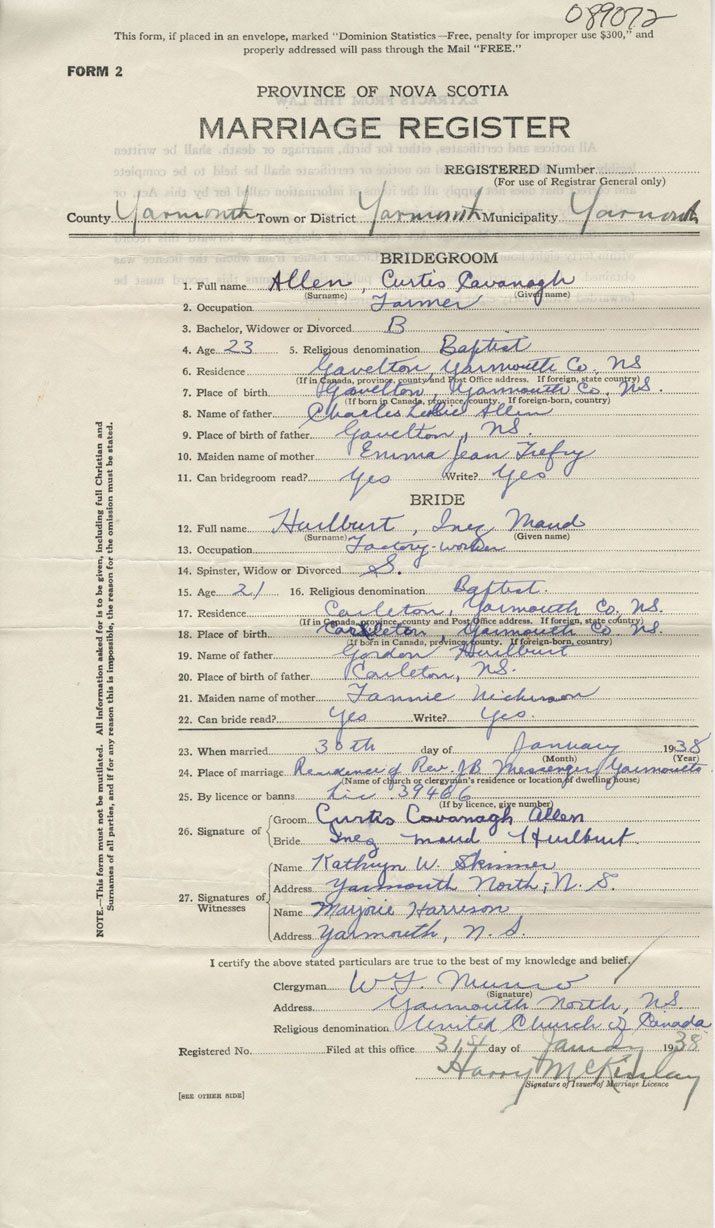 089072
This form, if placed in an envelope, marked "Dominion Statistics—Free, penalty for improper use $300," and
properly addressed will pass through the Mail "FREE."
FORM 2
PROVINCE OF NOVA SCOTIA
MARRIAGE REGISTER
REGISTERED Number
(For use of Registrar General only)
County Yarmouth Town or District Yarmouth Municipality Yarmouth
BRIDEGROOM
1. Full name Allen, Curtis Cavanagh
(Surname) (Given name)
2. Occupation Farmer
3. Bachelor, Widower or Divorced B
4. Age 23 5. Religious denomination Baptist
6. Residence Gavelton, Yarmouth Co, NS
(If in Canada, province, county and Post Office address. If foreign, state country)
7. Place of birth Gavelton, Yarmouth Co, NS.
(If born in Canada, province, county. If foreign-born, country)
8. Name of father Charles Leslie Allen
9. Place of birth of father Gavelton, NS.
10. Maiden name of mother Emma Jean Trefry
11. Can bridegroom read? Yes Write? Yes
BRIDE
12. Full name Hurlburt, Inez Maud
(Surname) (Given name)
13. Occupation Factory-worker
14. Spinster, Widow or Divorced S.
15. Age 21 16. Religious denomination Baptist.
17. Residence Carleton, Yarmouth Co, NS.
(If in Canada, province, county and Post Office address. If foreign, state country)
18. Place of birth Carleton, Yarmouth Co. NS.
(If born in Canada, province, county. If foreign-born, country)
19. Name of father Gordon Hurlburt
20. Place of birth of father Carleton, NS.
21. Maiden name of mother Fannie Nickerson
22. Can bride read? Yes Write? Yes.
23. When married 30th day of January 1938
(Month) (Year)
24. Place of marriage Residence of Rev. JB Messenger, Yarmouth
(Name of church or location of clergyman's residence or location of dwelling house)
25. By licence or banns Lic. 39466
(If by licence, give number)
26. Signature of
Groom Curtis Cavanagh Allen
Bride Inez Maud Hurlburt.
27. Signatures of Witnesses
Name Kathryn W. Skinner
Address Yarmouth North, N. S.
Name Marjorie Harrison
Address Yarmouth, N. S.
I certify the above stated particulars are true to the best of my knowledge and belief.
Clergyman Munro
(Signature)
Address Yarmouth North, NS
Religious denomination United Church of Canada
Registered No. Filed at this office 31st day of January 1938
Harry McKinlay
Signature of Issuer of Marriage Licence
[SEE OTHER SIDE]
NOTE.—This form must not be mutilated. All information asked for is to be given, including full Christian and
Surnames of all parties, and if for any reason this is impossible, the reason for the omission must be stated.